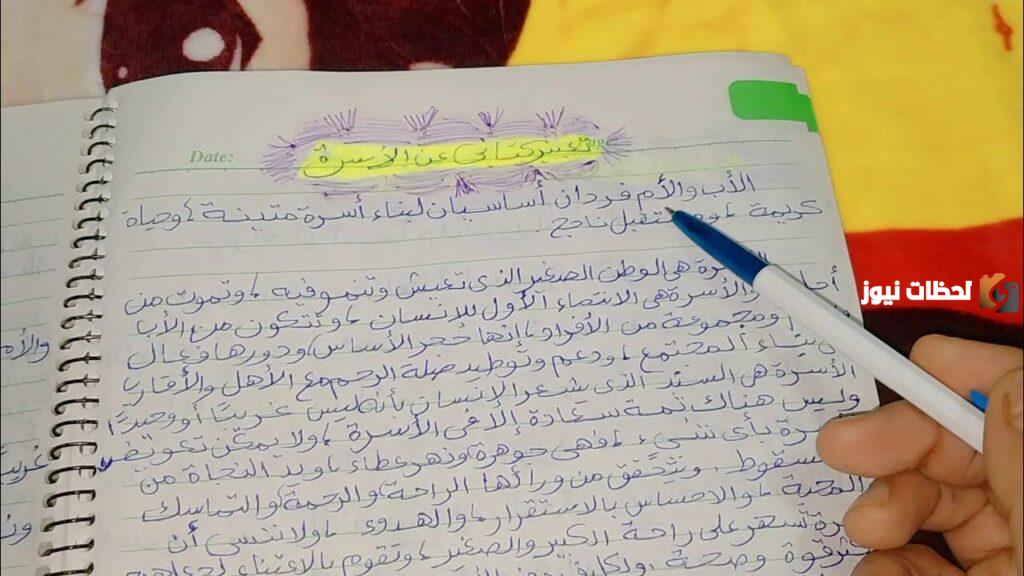 Date:
تعبير كتابي عن الأسرة
الأب والأم فردان أساسيان لبناء أسرة متينة ، وحياة
كريمة ، ومستقبل ناجح .
الأسرة هي الوطن الصغير الذي تعيش وتنمو فيه ، وتموت من
والأسرة هي الانتماء الأول للإنسان ، وتتكون من الأب
ومجموعة من الأفراد ، إنها حجر الأساس ، ودورها فعال
في بناء المجتمع ، ودعم وتوطيد صلة الرحم مع الأهل والأقارب
الأسرة هي السند الذي يشعر الإنسان بأنه ليس غريبًا أو وحيدًا
وليس هناك ثمة سعادة إلا في الأسرة ، ولا يمكن تعويض
بأي شيء ، فهي جوهرة ونهر عطاء ، ويد النجاة من
السقوط . ويتحقق من ورائها الراحة ، والرحمة ، والتماسك
المحبة ، والاحساس بالاستقرار ، والهدوء ، ولا ننسى أن
تسهر على راحة الكبير والصغير ، وتقوم بالاعتناء
قوة وصحة ،
لحظات نيوز